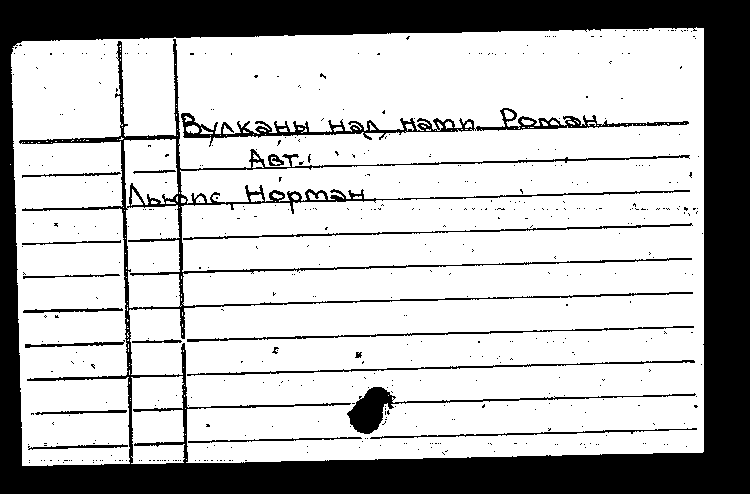 Вулканы над нами. Роман.
Авт.:
Льюис, Норман